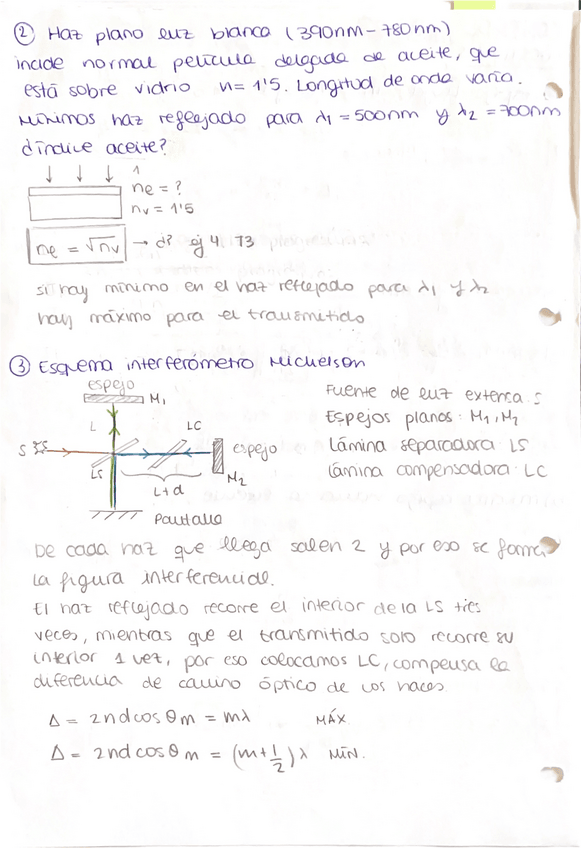 ② Haz plano luz blanca (390nm - 780nm)
incide normal película delgada de aceite, que
está sobre vidrio n = 1'5. Longitud de onda varía.
Mínimos haz reflejado para λ₁ = 500nm y λ₂ = 700nm
¿índice aceite?
1
ne = ?
nv = 1'5
ne = √nv → d? ej 4. 73
si hay mínimo en el haz reflejado para λ₁ y λ₂
hay máximo para el transmitido
③ Esquema interferómetro Michelson
espejo
M₁
L
LC
S
espejo
LS
M₂
L+d
Pantalla
Fuente de luz extensa: S
Espejos planos: M₁, M₂
Lámina separadora: LS
Lámina compensadora: LC
De cada haz que llega salen 2 y por eso se forma
la figura interferencial.
El haz reflejado recorre el interior de la LS tres
veces, mientras que el transmitido solo recorre su
interior 1 vez, por eso colocamos LC, compensa la
diferencia de camino óptico de los haces
Δ = 2nd cos θm = mλ MÁX
Δ = 2nd cos θm = (m+1/2)λ MÍN.